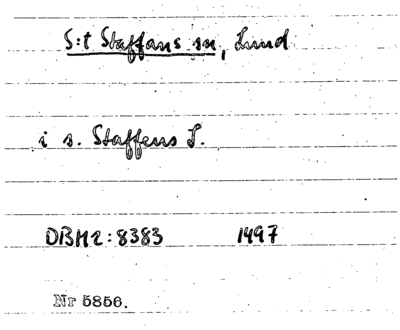 S:t Staffans sn, Lund
i s. Staffens S.
DBH2:8383 1497
Nr 5856.